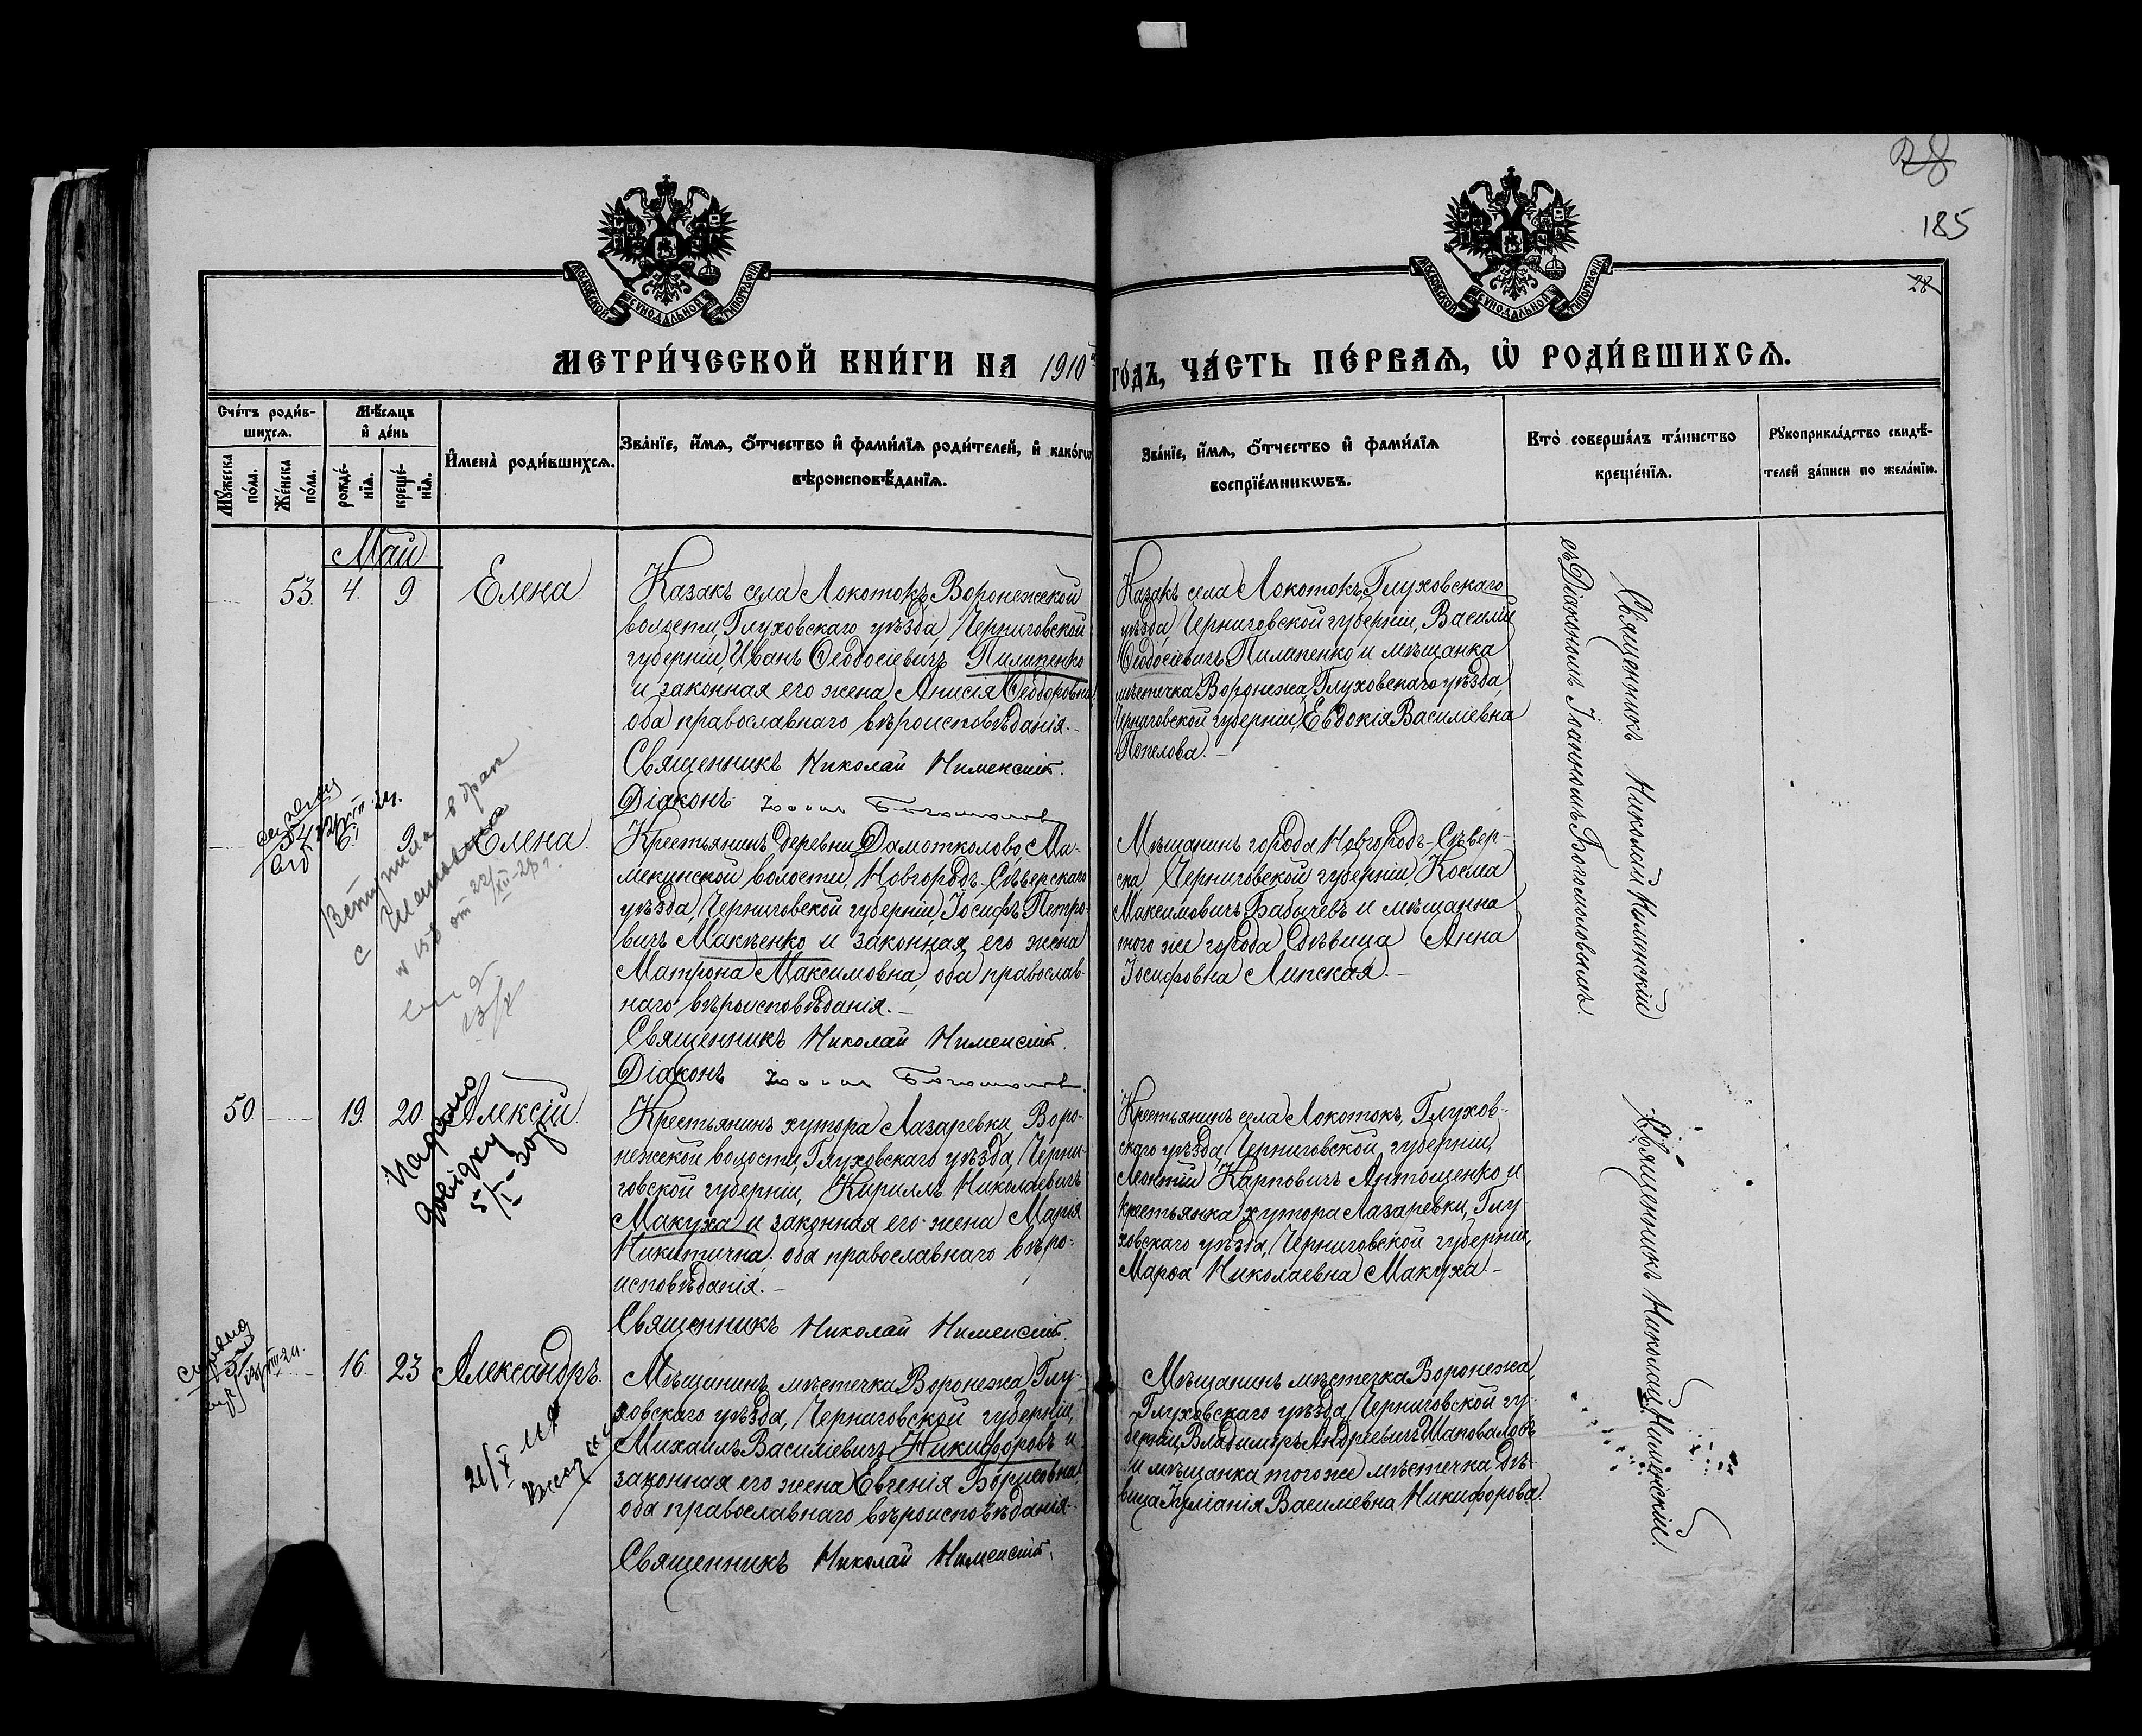 28
185
МОСКОВСКОЙ СѴНОДАЛЬНОЙ ТИПОГРАФІИ
МОСКОВСКОЙ СѴНОДАЛЬНОЙ ТИПОГРАФІИ
28
МЕТРИ́ЧЕСКОЙ КНИ́ГИ НА 1910й
ГО́ДЪ, ЧА́СТЬ ПЕ́РВАѦ, Ѿ РОДИ́ВШИХСѦ.
Сче́тъ роди́в-
шихсѧ.
Мꙋжеска по́ла.
Же́нска по́ла.
Мѣ́сѧцъ
и҆ де́нь
рожде́-
нїѧ.
креще́-
нїѧ.
И҆мена̀ роди́вшихсѧ.
Зва́нїе, и҆́мѧ, ѻ҆́тчество и҆ фами́лїѧ роди́телей, и҆ како́гѡ
вѣроисповѣ́данїѧ.
Зва́нїе, и҆́мѧ, ѻ҆́тчество и҆ фами́лїѧ
воспрїе́мникѡвъ.
Кто̀ соверша́лъ та́инство
креще́нїѧ.
Рꙋкоприкла́дство свидѣ́-
телей за́писи по жела́нїю.
Май
53. 4. 9 Елена
Казакъ села Локотокъ, Воронежской
волости, Глуховскаго уѣзда, Черниговской
губерніи, Иванъ Ѳеодосіевичъ Пилипенко
и законная его жена Анисія Ѳеодоровна,
оба православнаго вѣроисповѣданія.-
Священникъ Николай Нименскій.
Діаконъ Іоаннъ Богомолов
Казакъ села Локотокъ, Глуховскаго
уѣзда, Черниговской губерніи, Василій
Ѳеодосіевичъ Пилипенко и мѣщанка
мѣстечка Воронежа, Глуховскаго уѣзда,
Черниговской губерніи, Евдокія Василіевна
Попелова.-
Священникъ Николай Нименскій
съ Діакономъ Іоанномъ Богомоловымъ.
54 6. 9. Елена.
Вступила в брак
с
от 22/XII-28 г.
Крестьянинъ деревни Дамотколово, Ма-
мекинской волости, Новгородъ-Сѣверскаго
уѣзда, Черниговской губерніи, Іосифъ Петро-
вичъ Макѣенко и законная его жена
Матрона Максимовна, оба православ-
наго вѣроисповѣданія.-
Священникъ Николай Нименскій.
Діаконъ Іоаннъ Богомолов.
Мѣщанинъ города Новгородъ-Сѣвер-
ска, Черниговской губерніи, Косма
Максимовичъ Бабычевъ и мѣщанка
того же города дѣвица Анна
Іосифовна Липская.-
50. 19. 20. Алексій.
Надано
довідку
5/I-30 р
Крестьянинъ хутора Лазаревки, Воро-
нежской волости, Глуховскаго уѣзда, Черни-
говской губерніи, Кириллъ Николаевичъ
Макуха и законная его жена Марія
Никитична, оба православнаго вѣро-
исповѣданія.-
Священникъ Николай Нименскій.
Крестьянинъ села Локотокъ, Глухов-
скаго уѣзда, Черниговской губерніи,
Леонтій Карповичъ Антощенко и
крестьянка хутора Лазаревки, Глу-
ховскаго уѣзда, Черниговской губерніи,
Марѳа Николаевна Макуха.-
Священникъ Николай Нименскій.
16. 23 Александръ.
Мѣщанинъ мѣстечка Воронежа, Глу-
ховскаго уѣзда, Черниговской губерніи,
Михаилъ Василіевичъ Никифоровъ и
законная его жена Евгенія Борисовна,
оба православнаго вѣроисповѣданія.-
Священникъ Николай Нименскій.
Мѣщанинъ мѣстечка Воронежа,
Глуховскаго уѣзда, Черниговской гу-
берніи, Владимиръ Андреевичъ Шаповаловъ
и мѣщанка того же мѣстечка дѣ-
вица Іуліанія Василіевна Никифорова.